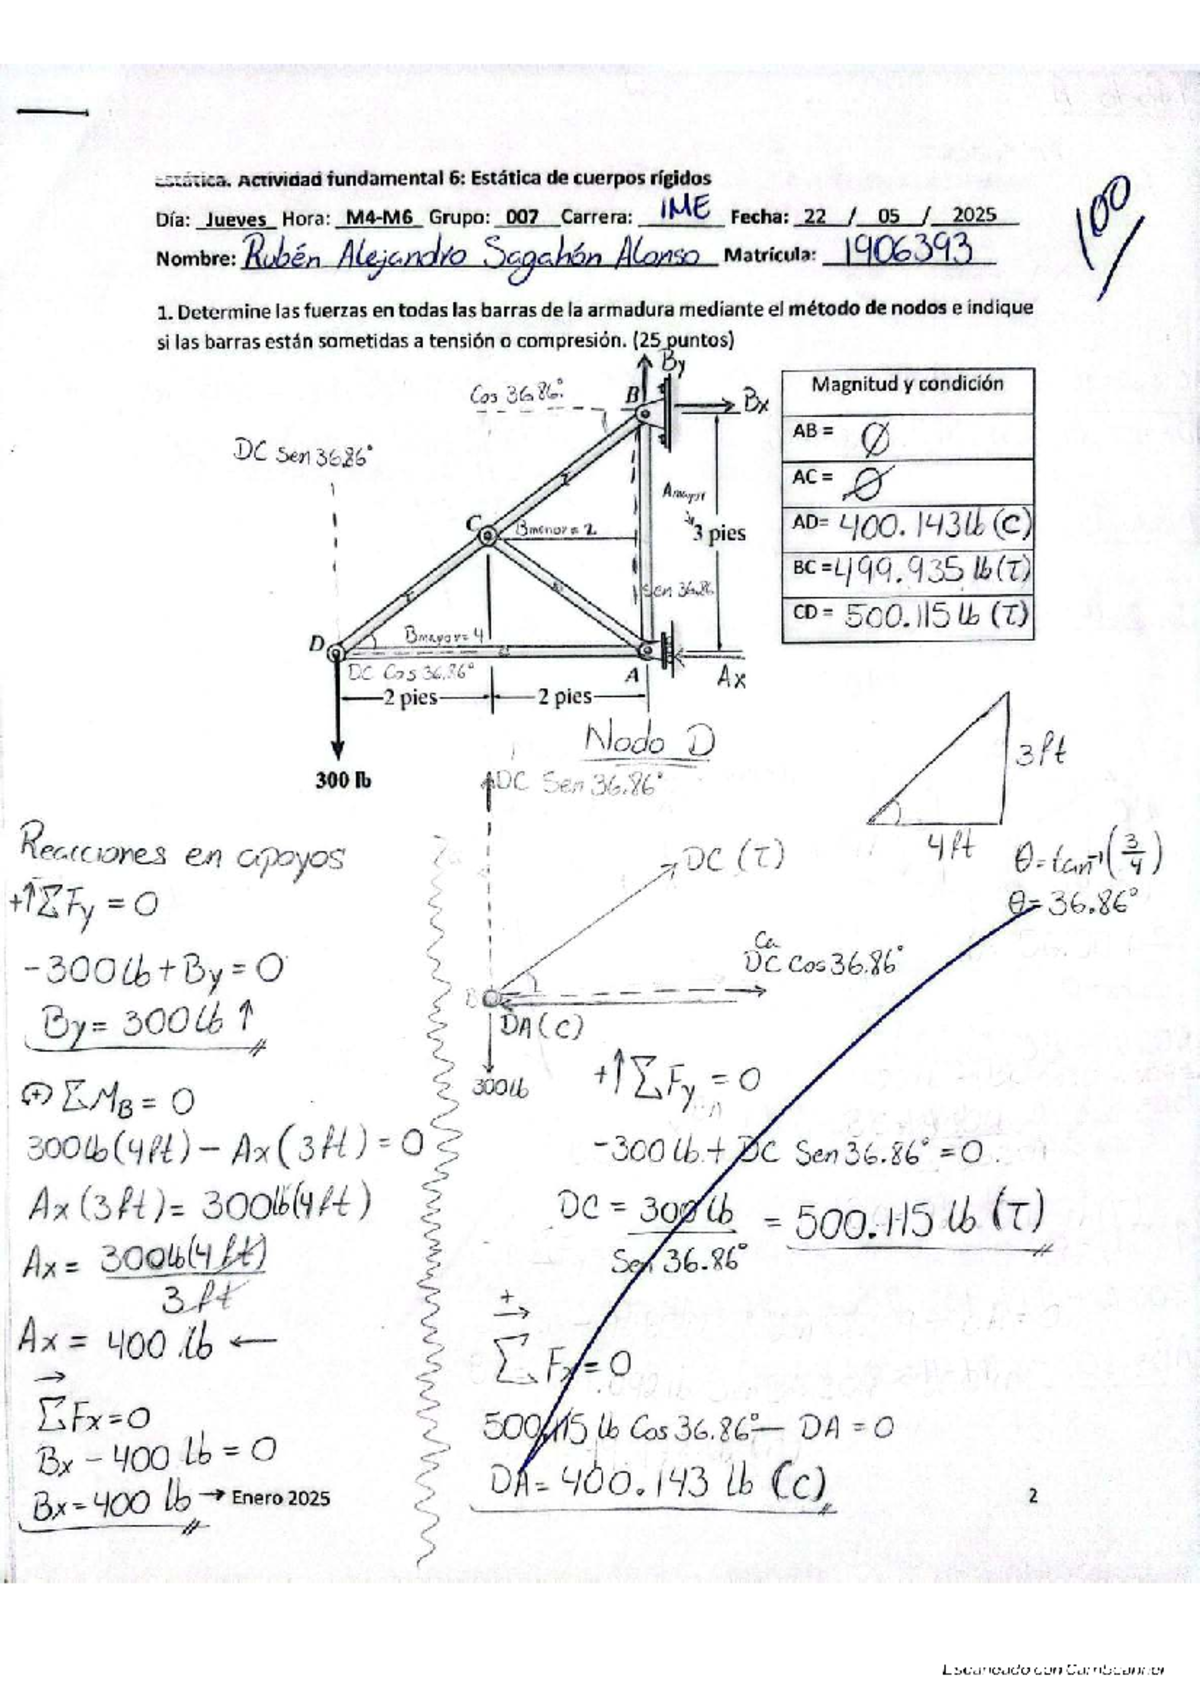 Estática. Actividad fundamental 6: Estática de cuerpos rígidos
Día: Jueves Hora: M4-M6 Grupo: 007 Carrera: IME Fecha: 22 / 05 / 2025
Nombre: Rubén Alejandro Sagahón Alonso Matrícula: 1906393
100
1. Determine las fuerzas en todas las barras de la armadura mediante el método de nodos e indique
si las barras están sometidas a tensión o compresión. (25 puntos)
By
Cos 36.86°
B
Bx
DC Sen 36.86°
Amayor
C
Bmenor = 2
3 pies
Sen 36.86
D
Bmayor = 4
DC Cos 36.86°
A
Ax
2 pies
2 pies
300 lb
Magnitud y condición
AB = Ø
AC = Ø
AD= 400.143lb (C)
BC = 499.935 lb (T)
CD = 500.115 lb (T)
3ft
4ft
θ=tan⁻¹(3/4)
θ= 36.86°
Reacciones en apoyos
+↑ΣFy = 0
-300lb + By = 0
By = 300lb ↑
ΣMB = 0
300lb(4ft) - Ax(3ft) = 0
Ax(3ft) = 300lb(4ft)
Ax = 300lb(4ft)
3ft
Ax = 400 lb ←
→
ΣFx=0
Bx - 400 lb = 0
Bx = 400 lb →
Nodo D
DC Sen 36.86°
DC (T)
DC Cos 36.86°
DA (C)
300lb
+↑ΣFy = 0
-300 lb + DC Sen 36.86° = 0
DC = 300 lb = 500.115 lb (T)
Sen 36.86°
+
→
ΣFx = 0
500.115 lb Cos 36.86° - DA = 0
DA = 400.143 lb (C)
Enero 2025
2
Escaneado con CamScanner